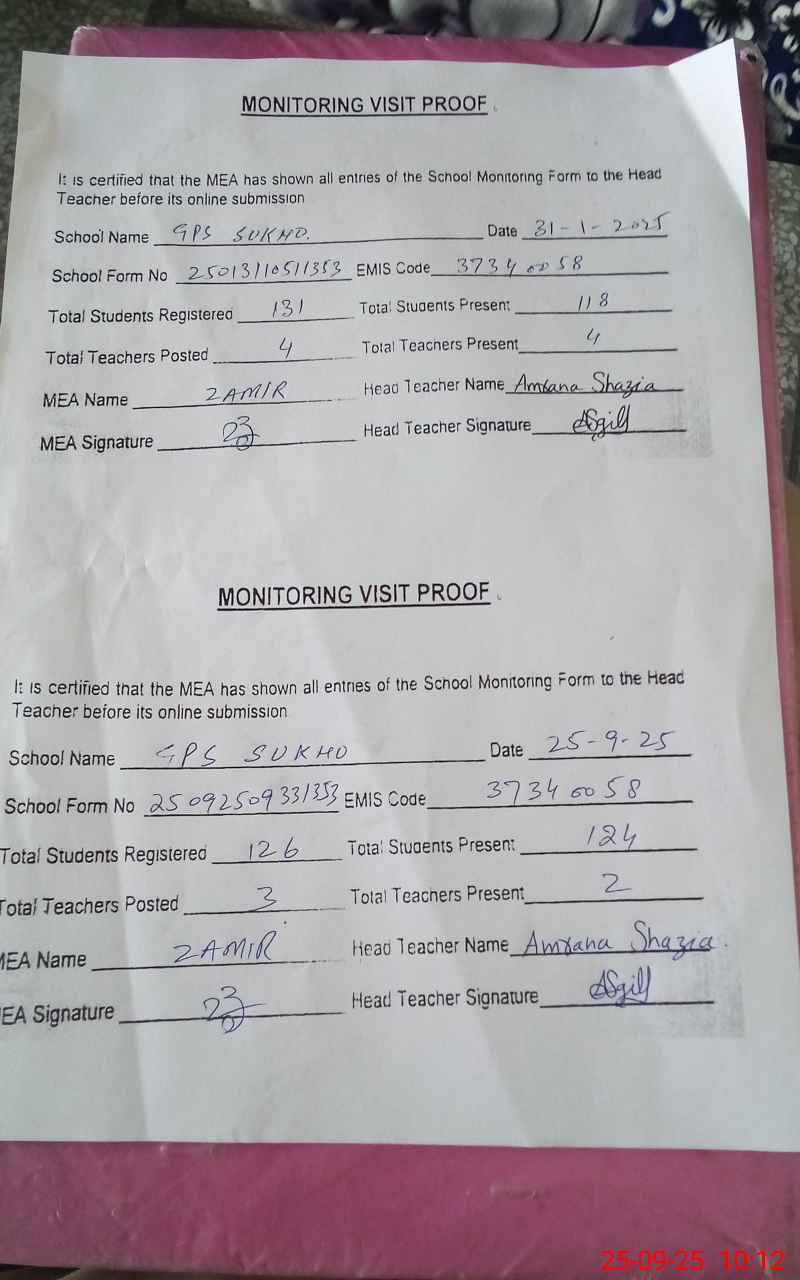 MONITORING VISIT PROOF
It is certified that the MEA has shown all entries of the School Monitoring Form to the Head
Teacher before its online submission
School Name GPS SUKHO. Date 31-1-2025
School Form No 25013110511353 EMIS Code 37340058
Total Students Registered 131 Total Students Present 118
Total Teachers Posted 4 Total Teachers Present 4
MEA Name ZAMIR Head Teacher Name Amrana Shazia
MEA Signature Head Teacher Signature ASgill
MONITORING VISIT PROOF
It is certified that the MEA has shown all entries of the School Monitoring Form to the Head
Teacher before its online submission
School Name GPS SUKHO Date 25-9-25
School Form No 25092509331353 EMIS Code 37340058
Total Students Registered 126 Total Students Present 124
Total Teachers Posted 3 Total Teachers Present 2
MEA Name ZAMIR Head Teacher Name Amrana Shazia.
EA Signature Head Teacher Signature ASgill
25-09-25 10:12